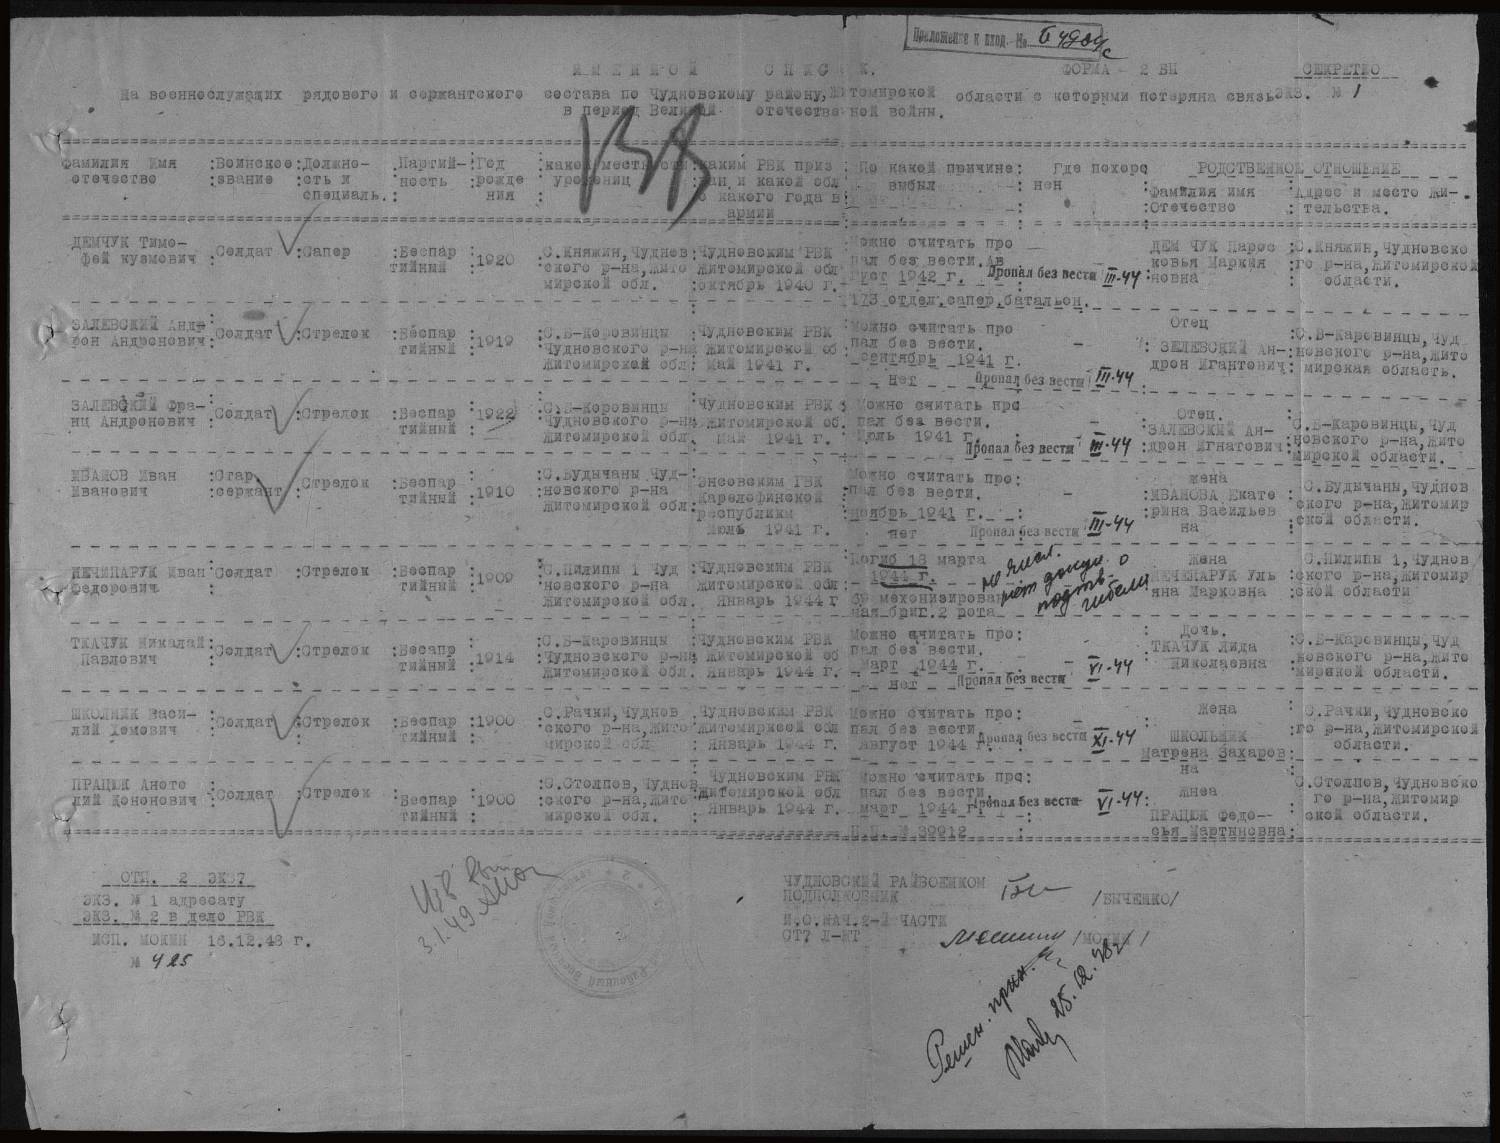 Приложение к вход. №
ИМЕННОЙ СПИСОК. ФОРМА - 2 БН СЕКРЕТНО
На военнослужащих рядового и сержантского состава по Чудновскому району, Житомирской области с которыми потеряна связь ЭКЗ. № 1
в период Великой отечественной войны.
Фамилия Имя отечество
Воинское звание
Должность и специаль.
Партийность
Год рождения
какой местности уроженец
каким РВК призван и какой обл с какого года в армии
По какой причине выбыл
Где похоронен
РОДСТВЕННОЕ ОТНОШЕНИЕ
Фамилия имя Отечество
Адрес и место жительства.
ДЕМЧУК Тимо-
фей кузмович
Солдат
Сапер
Беспар
тийный
1920
С.Княжин,Чуднов
ского р-на,Жито
мирской обл.
Чудновским РВК
Житомирской обл
октябрь 1940 г.
Можно считать про
пал без вести.Ав
густ 1942 г.
Пропал без вести III-44
173 отдел.сапер.батальон.
ДЕМ ЧУК Парос
ковья Маркия
новна
С.Княжин,Чудновско
го р-на,Житомирской
области.
ЗАЛЕВСКИЙ Анд-
рон Андронович
Солдат
Стрелок
Беспар
тийный
1919
С.Б-Коровинцы
Чудновского р-на
Житомирской обл
Чудновским РВК
Житомирской об
Май 1941 г.
Можно считать про
пал без вести.
сентябрь 1941 г.
нет
Пропал без вести III-44
Отец
ЗЕЛЕВСКИЙ Ан-
дрон Игантович
С.Б-Каровинцы,Чуд
новского р-на,Жито
мирская область.
ЗАЛЕВСКИЙ Фра-
нц Андронович
Солдат
Стрелок
Беспар
тийный
1922
С.Б-Коровинцы
Чудновского р-на
Житомирской обл.
Чудновским РВК
Житомирской об
Май 1941 г.
Можно считать про
пал без вести.
Июль 1941 г.
Пропал без вести III-44
Отец.
ЗАЛЕВСКИЙ Ан-
дрон Игнатович
С.Б-Каровинцы,Чуд
новского р-на,Жито
мирской области.
ИВАНОВ Иван
Иванович
Стар.
сержант
Стрелок
Беспар
тийный
1910
С.Будычаны Чуд-
новского р-на
Житомирской обл.
Энсовским ГВК
Карелофинской
республики
Июль 1941 г.
Можно считать про
пал без вести.
ноябрь 1941 г.
нет
Пропал без вести III-44
жена
ИВАНОВА Екате
рина Васильев
на
С.Будычаны,Чуднов
ского р-на,Житомир
ской области.
НЕЧИПАРУК Иван
Федорович
Солдат
Стрелок
Беспар
тийный
1909
С.Пилипы 1 Чуд
новского р-на
Житомирской обл.
Чудновским РВК
Житомирской обл
Январь 1944 г
Погиб 18 марта
1944 г.
69 механизирован
ная бриг.2 рота
не числ.
нет докум. о
подтв.
гибели
Жена
НЕЧЕПАРУК Уль
яна Марковна
С.Пилипы 1,Чуднов
ского р-на,Житомир
ской области
ТКАЧУК Николай
Павлович
Солдат
Стрелок
Бесапр
тийный
1914
С.Б-Каровинцы
Чудновского р-на
Житомирской обл.
Чудновским РВК
Житомирской об
Январь 1944 г.
Можно считать про
пал без вести.
Март 1944 г.
нет
Пропал без вести VI-44
Дочь.
ТКАЧУК Лида
Николаевна
С.Б-Каровинцы,Чуд
новского р-на,Жито
мирской области.
ШКОЛНИК Васи-
лий Демович
Солдат
Стрелок
Беспар
тийный
1900
С.Рачки,Чуднов
ского р-на,Жито
мирской обл
Чудновским РВК
Житомирской обл
Январь 1944 г.
Можно считать про
пал без вести
Август 1944 г.
Пропал без вести XI-44
Жена
ШКОЛЬНИК
Матрена Захаров
на
С.Рачки,Чудновско
го р-на,Житомирской
области.
ПРАЦЮК Анато
лий Кононович
Солдат
Стрелок
Беспар
тийный
1900
С.Столпов,Чуднов
ского р-на,Жито
мирской обл.
Чудновским РВК
Житомирской обл
Январь 1944 г.
Можно считать про
пал без вести
март 1944 г.
П.П. № 39912
Пропал без вести VI-44
Жнеа
ПРАЦЮК Федо-
сья Мартыновна
С.Столпов,Чудновско
го р-на,Житомир
ской области.
ОТП. 2 ЭКЗ?
ЭКЗ. № 1 адресату
ЭКЗ. № 2 в дело РВК
ИСП. МОКИН 16.12.48 г.
№ 425
3.1.49
ЧУДНОВСКИЙ РАЙВОЕНКОМ
ПОДПОЛКОВНИК /БЫЧЕНКО/
И.О.НАЧ.2-Й ЧАСТИ
СТ? Л-НТ /МОКИН/
Решен. прин.
25.12.48г